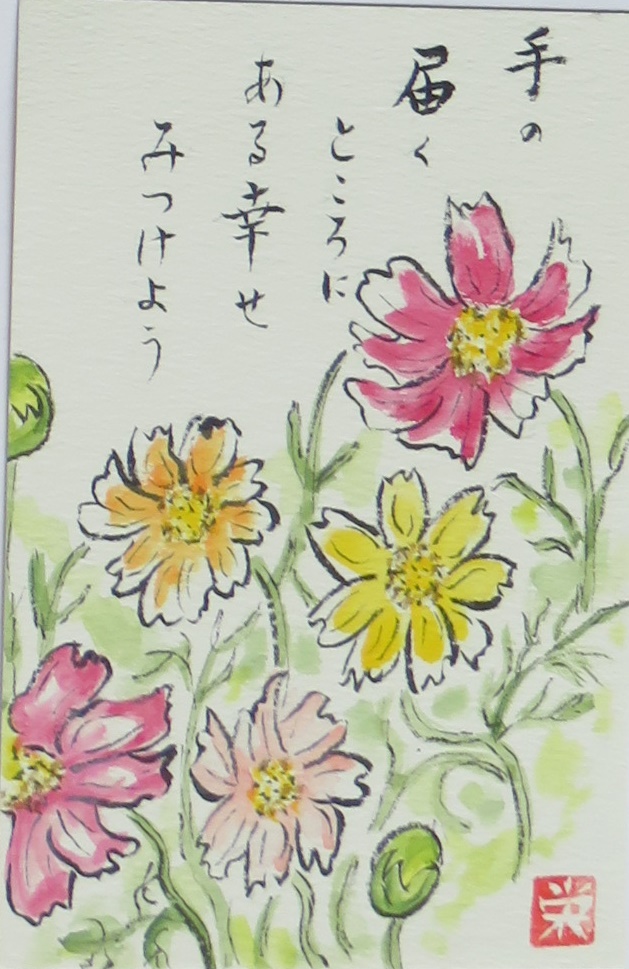 手の
届く
ところに
ある幸せ
みつけよう
栄